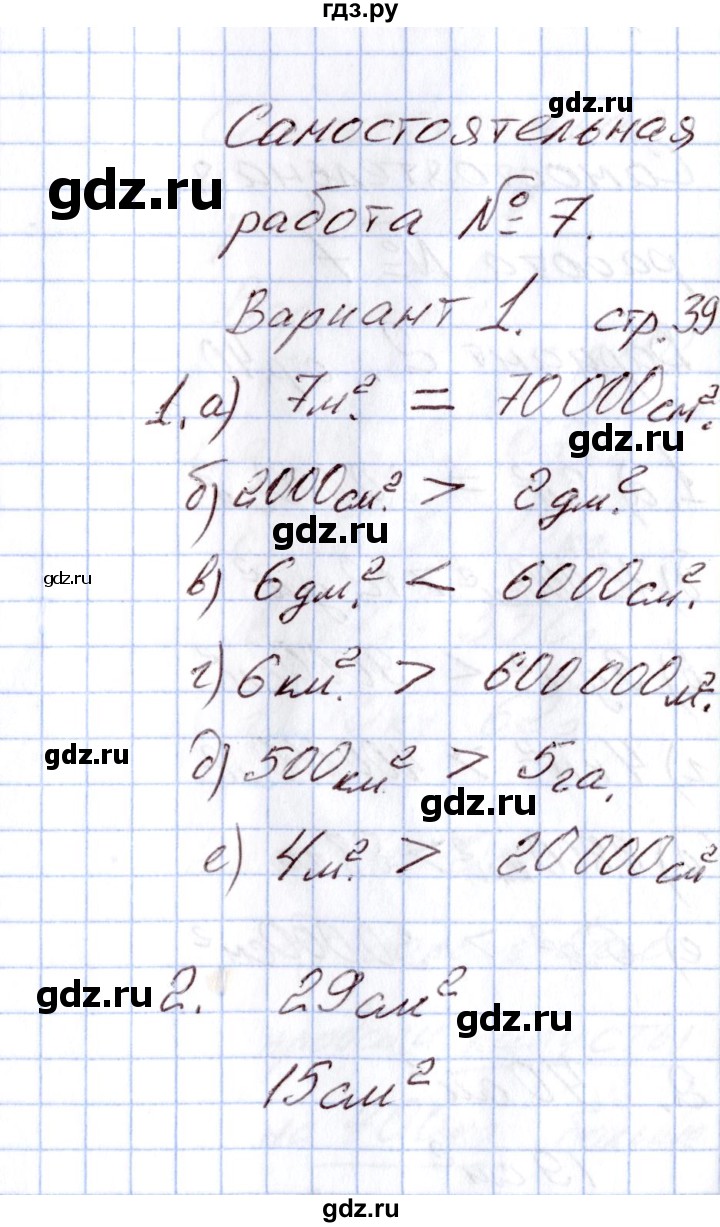 гдз.ру
gdz.ru
Самостоятельная
gdz.ru
работа № 7.
Вариант 1. стр. 39
1. а) 7м.² = 70 000см.²
gdz.ru
б) 2000см.² > 2дм.²
gdz.ru
gdz.ru
в) 6дм.² < 6000см.²
г) 6км.² > 600 000м.²
gdz.ru
д) 500км² > 5га.
gdz.ru
е) 4м.² > 20 000см²
gdz.ru
2. 29см²
gdz.ru
15см²
gdz.ru